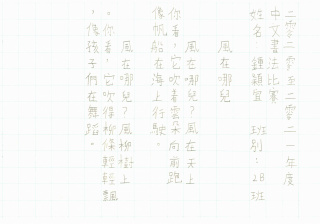 二零二零至二零二一年度
中文書法比賽
姓名：鍾穎宜　班別：2B班
風在哪兒
風在哪兒？風在天上
你看，它吹着雲朵向前跑
，像帆船在海上行駛。
風在哪兒？風柳樹上
。你看，它吹得柳條輕輕飄
，像孩子們在舞蹈。